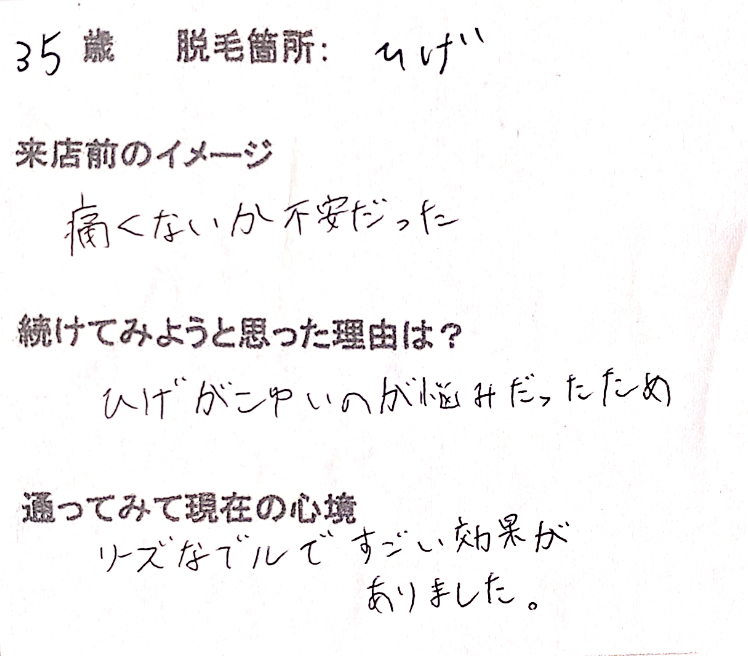 35歳 脱毛箇所: ひげ
来店前のイメージ
痛くないか不安だった
続けてみようと思った理由は？
ひげがこゆいのが悩みだったため
通ってみて現在の心境
リーズなブルですごい効果が
ありました。